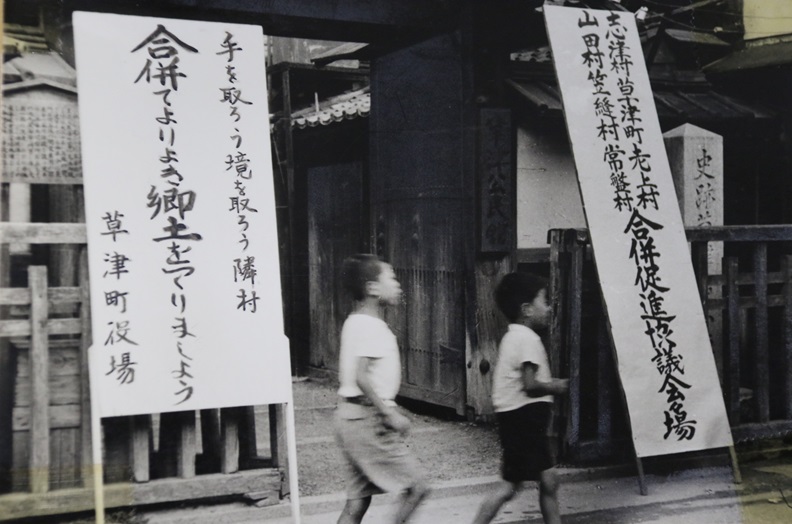 手を取ろう境を取ろう隣村
合併てよりよき郷土をつくりましよう
草津町役場
公民館
志津村草津町老上村
山田村笠縫村常盤村
合併促進協議会々場
史跡